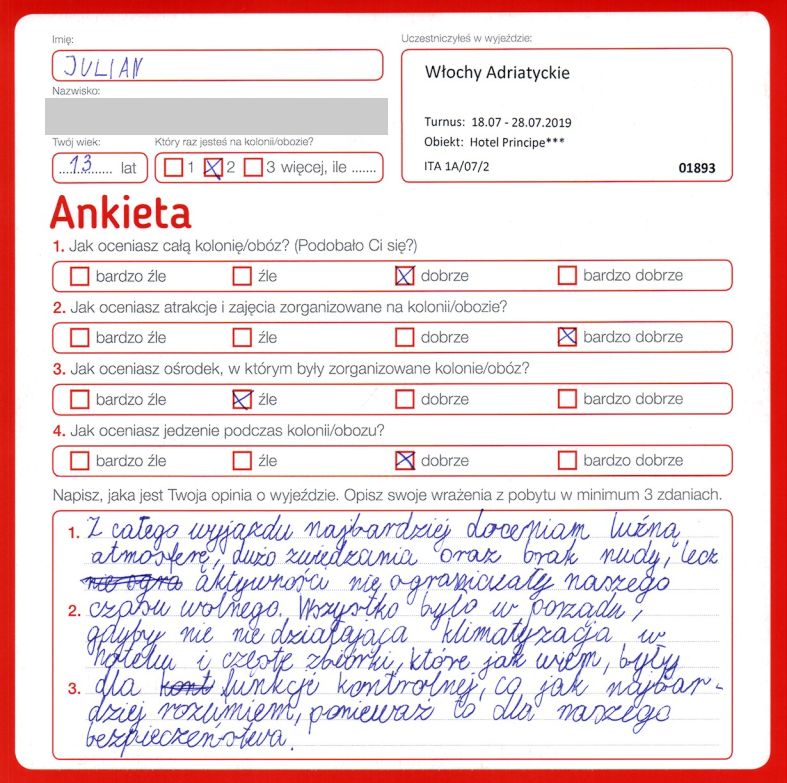 Imię:
JULIAN
Nazwisko:
Twój wiek:
13 lat
Który raz jesteś na kolonii/obozie?
1 2 3 więcej, ile .......
Uczestniczyłeś w wyjeździe:
Włochy Adriatyckie
Turnus: 18.07 - 28.07.2019
Obiekt: Hotel Principe***
ITA 1A/07/2 01893
Ankieta
1. Jak oceniasz całą kolonię/obóz? (Podobało Ci się?)
bardzo źle źle dobrze bardzo dobrze
2. Jak oceniasz atrakcje i zajęcia zorganizowane na kolonii/obozie?
bardzo źle źle dobrze bardzo dobrze
3. Jak oceniasz ośrodek, w którym były zorganizowane kolonie/obóz?
bardzo źle źle dobrze bardzo dobrze
4. Jak oceniasz jedzenie podczas kolonii/obozu?
bardzo źle źle dobrze bardzo dobrze
Napisz, jaka jest Twoja opinia o wyjeździe. Opisz swoje wrażenia z pobytu w minimum 3 zdaniach.
1. Z całego wyjazdu najbardziej doceniam luźną
atmosferę, dużo zwiedzania oraz brak nudy, lecz
nie ogra aktywności nie ograniczały naszego
2. czasu wolnego. Wszystko było w porządu,
gdyby nie nie działająca klimatyzacja w
hotelu i częste zbiórki, które jak wiem, były
3. dla kont funkcji kontrolnej, co jak najbar-
dziej rozumiem, ponieważ to dla naszego
bezpieczeństwa.